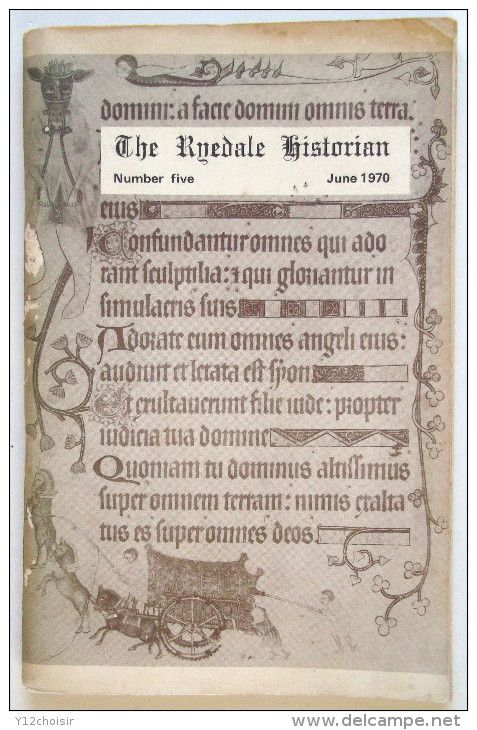 domini: a facie domini omnis terra.
The Ryedale Historian
Number five June 1970
eius
Confundantur omnes qui ado
rant sculptilia: ⁊ qui gloriantur in
simulacris suis
Adorate eum omnes angeli eius:
audiuit et letata est syon
Et exultauerunt filie iude: propter
iudicia tua domine
Quoniam tu dominus altissimus
super omnem terram: nimis exalta
tus es super omnes deos.
Y12choisir
delcampe.net